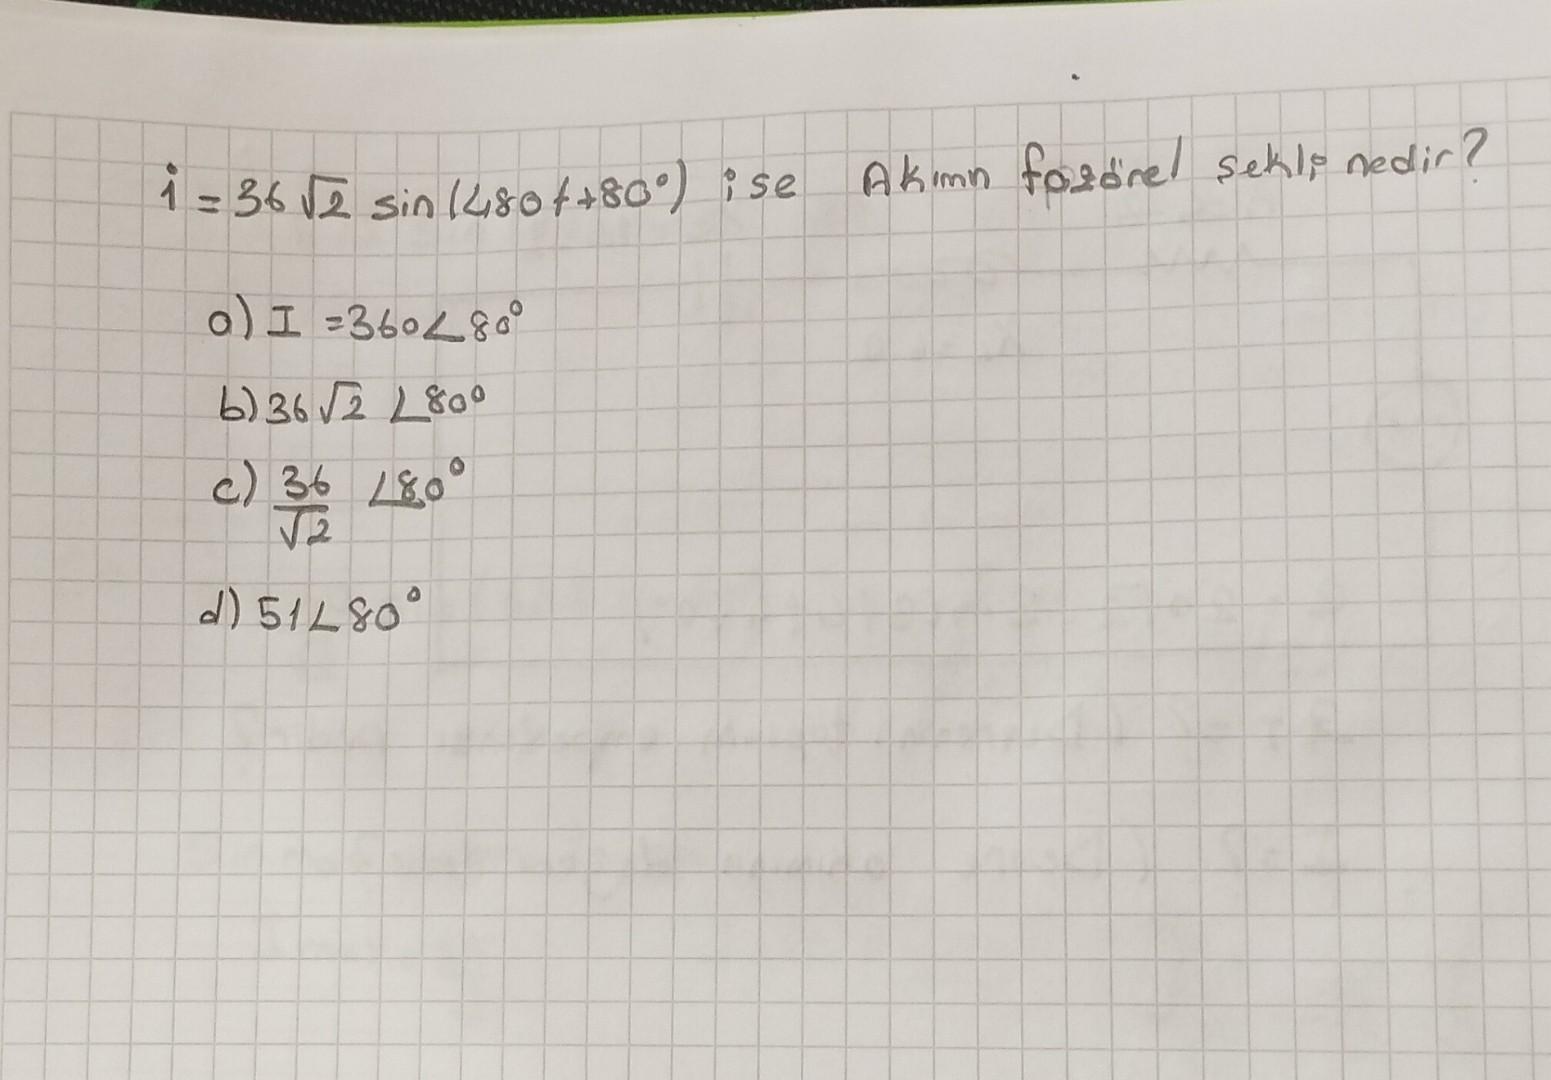 i = 36 √2 sin (480t+80°) ise Akımın fazörel şekli nedir?
a) I =360∠80°
b) 36 √2 ∠80°
c) 36/√2 ∠80°
d) 51∠80°